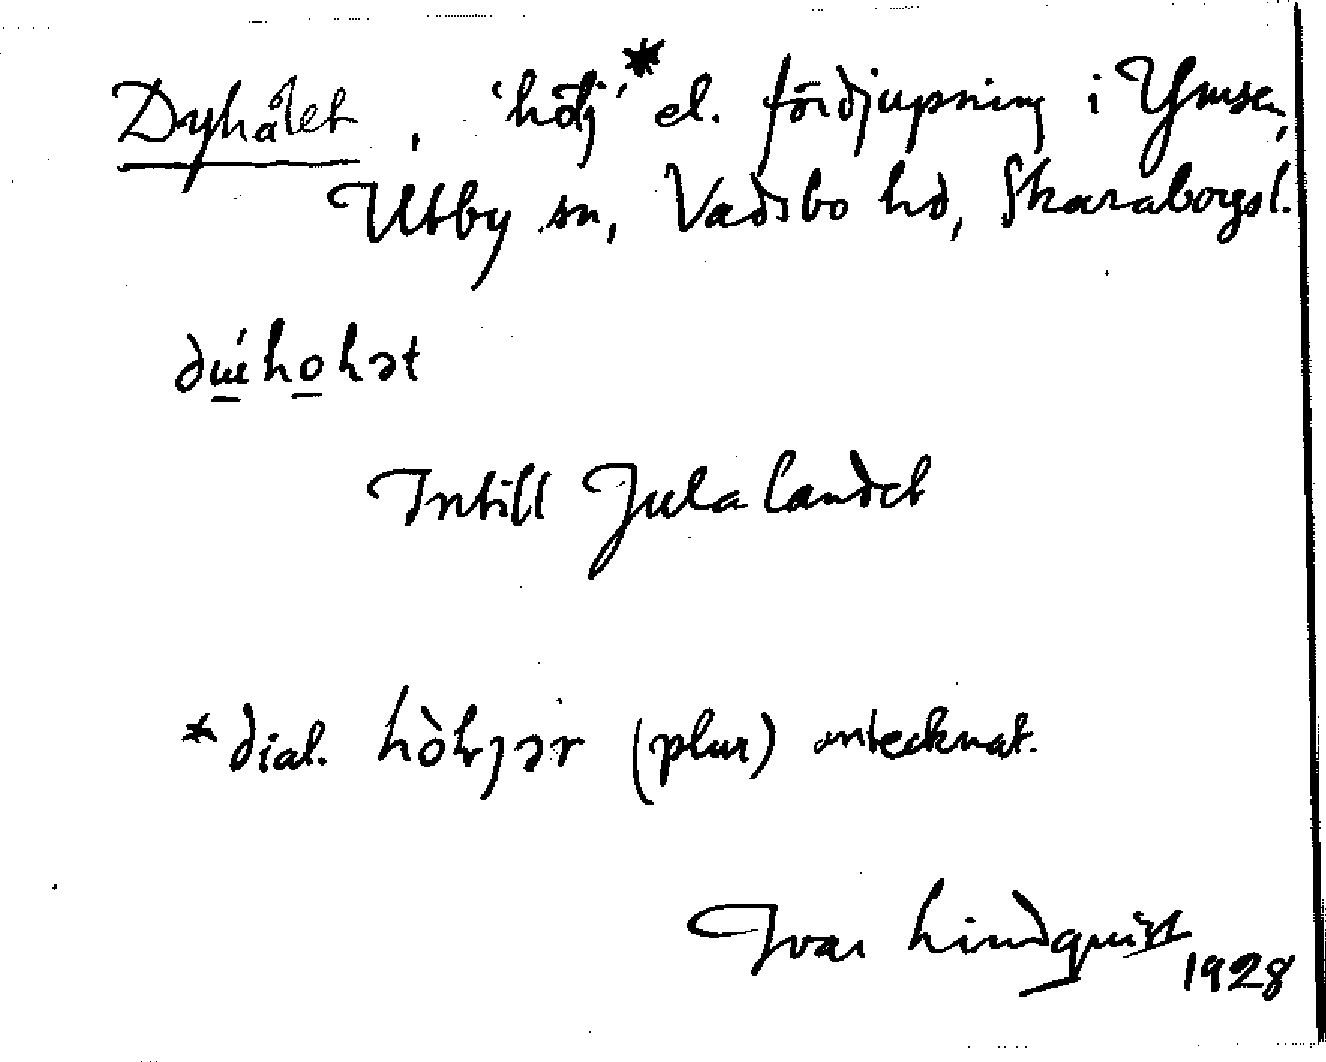 Dyhålet, 'hölj'* el. fördjupning i Ymsen,
Utby sn, Vadsbo hd, Skaraborgs l.
Intill Julalandet
*dial. (plur) antecknat.
Ivar Lindquist
1928